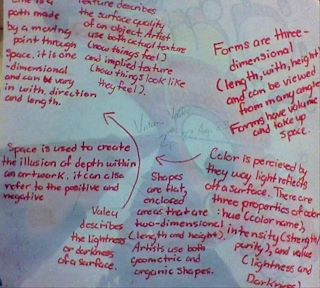 Line is a
path made
by a moving
point through
space, it is one
-dimensional
and can vary
in with, direction
and length.
Texture describes
the surface quality
of an object. Artist
use both actual texture
(how things feel)
and implied texture
(how things look like
they feel).
Forms are three-
dimensional
(length, with, height)
and can be viewed
from many angles
Forms have volume
and take up
space.
Space is used to create
the illusion of depth within
an artwork. it can also
refer to the positive and
negative
Shapes
are flat,
enclosed
areas that are
two-dimensional
(length and height).
Artists use both
geometric and
organic shapes.
Color is percieved by
they way light reflects
off a surface. There are
three properties of color
: hue (color name),
intensity (strength/
purity), and value
(lightness and
Darkness)
Valey
describes
the lightness
or darkness
of a surface.